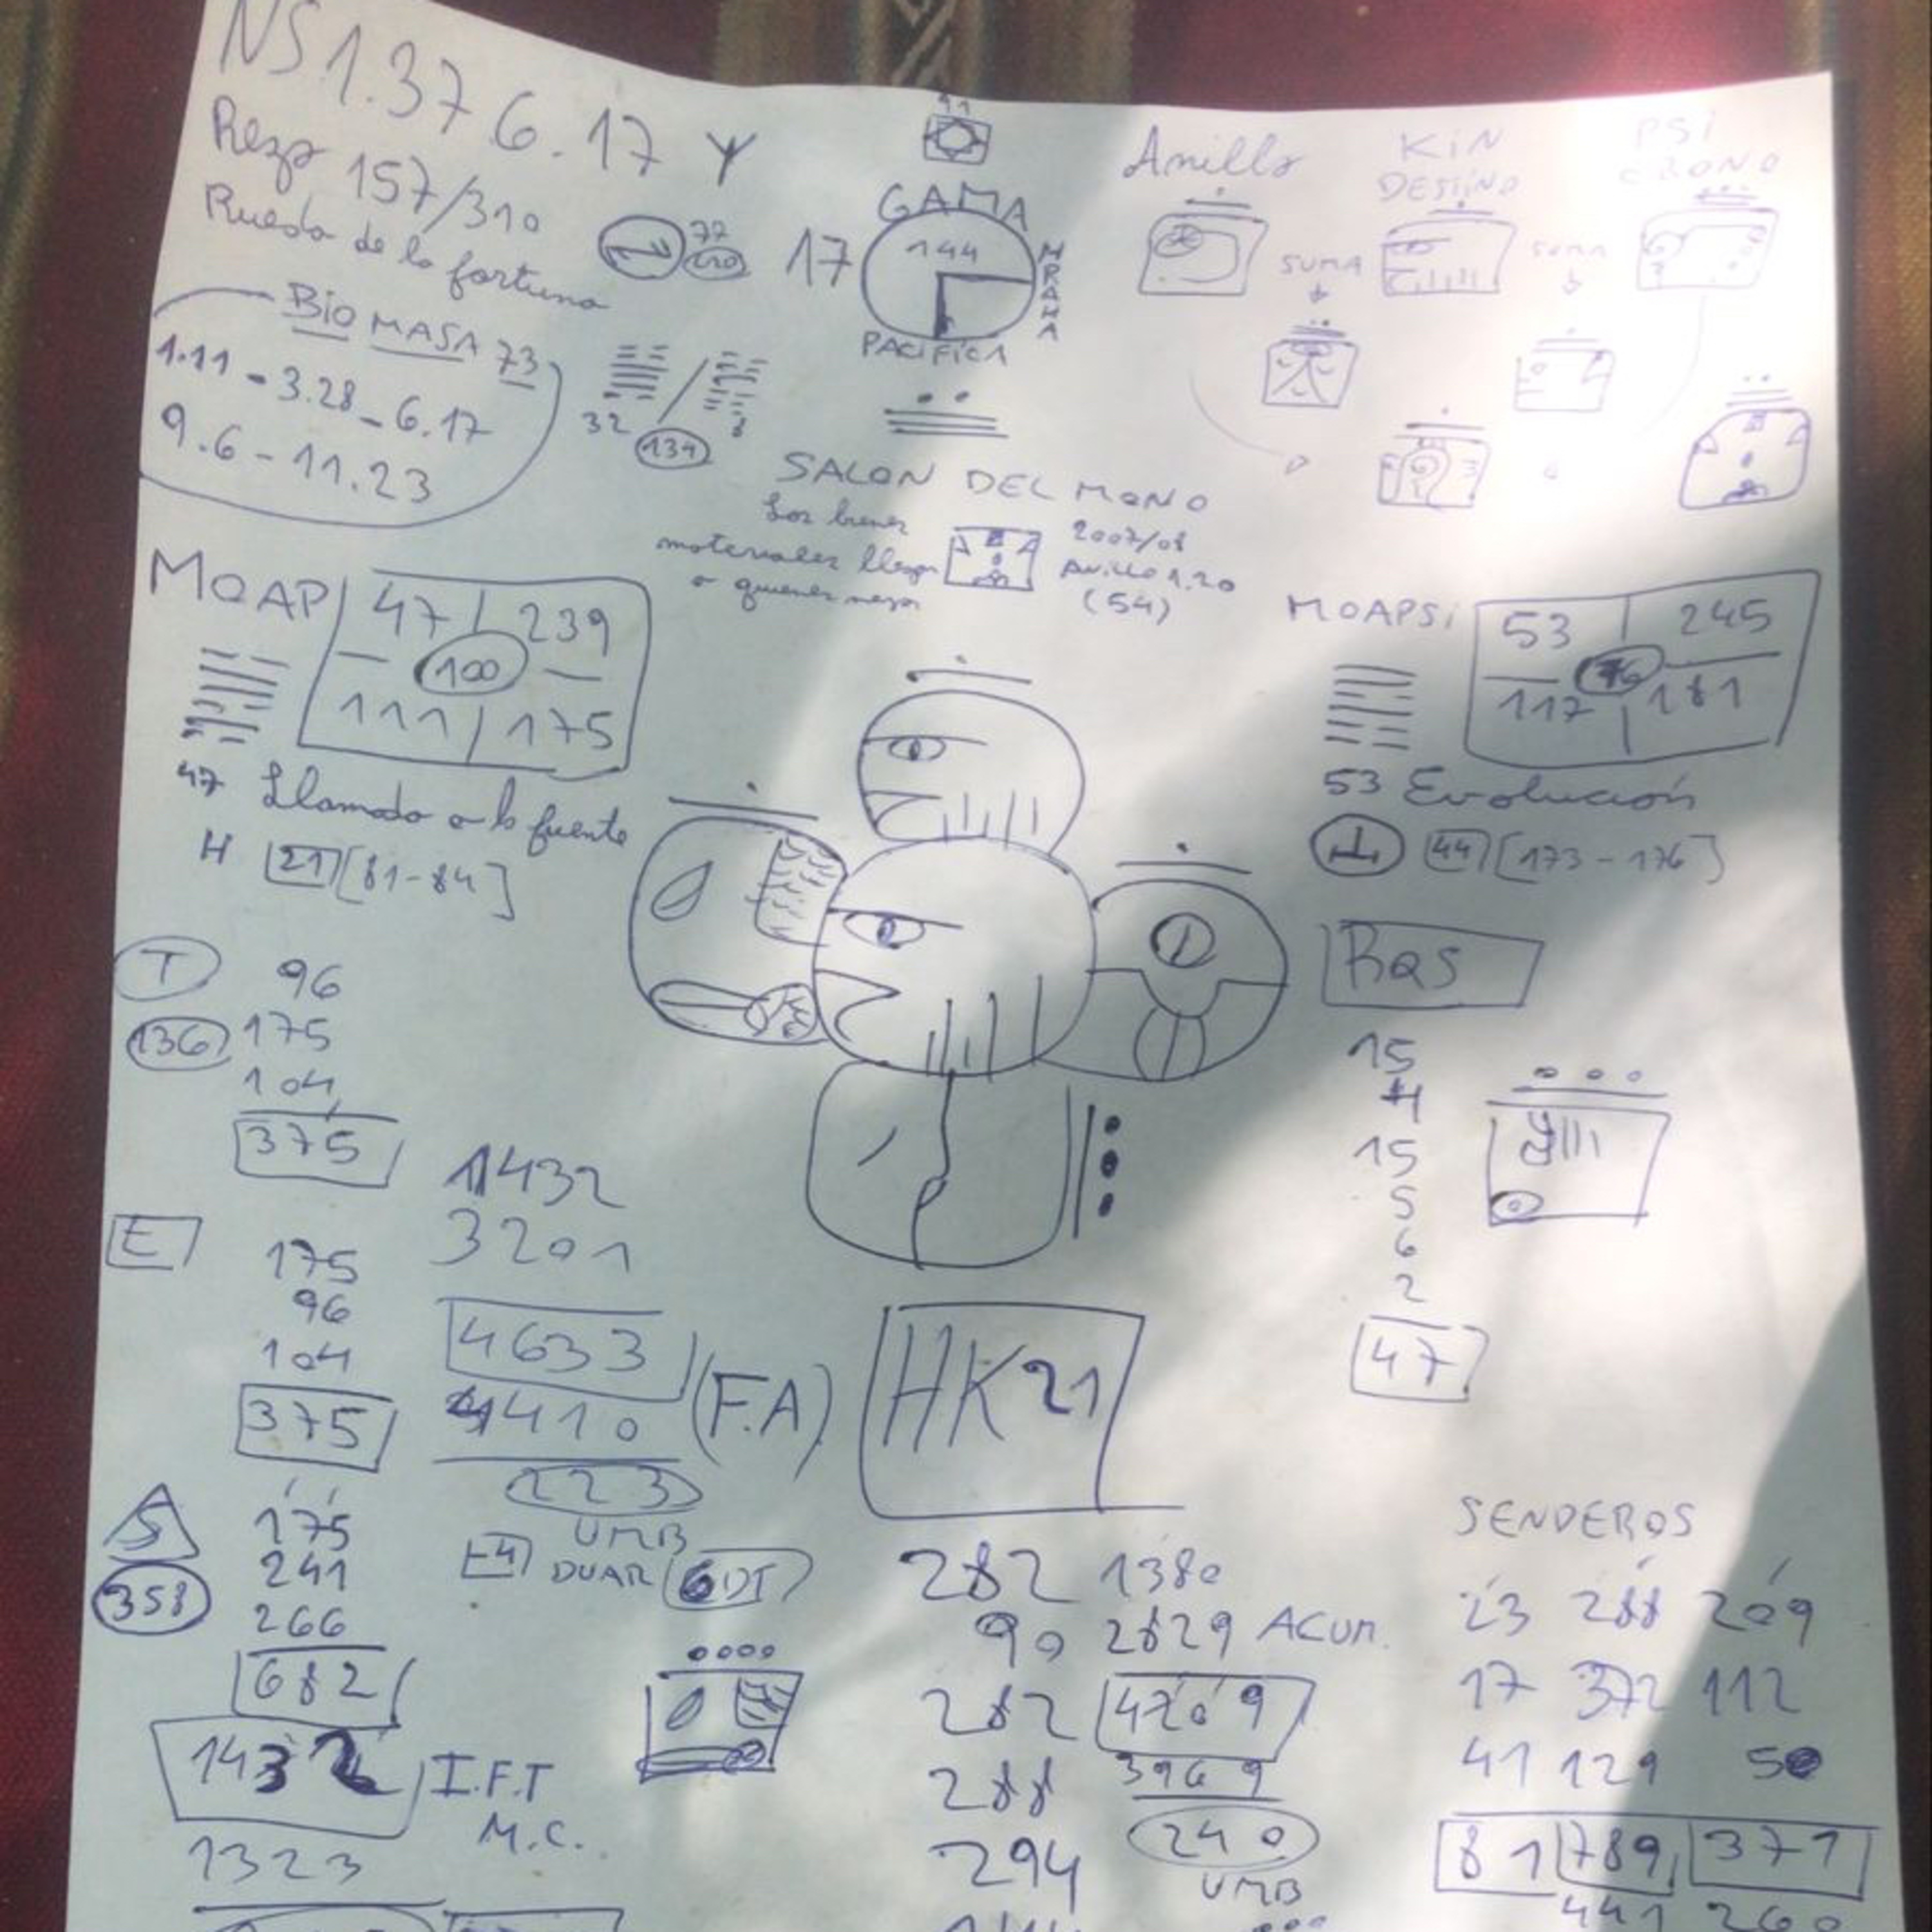 NS 1.37 6.17
Rezo 157/310
Rueda de la fortuna
Bio MASA 73
1.11 - 3.28 - 6.17
9.6 - 11.23
77
17
GAMA
144
MRAHA
PACIFICA
32
134
Anillo
KIN
DESTINO
PSI
CRONO
SUMA
SUMA
SALON DEL MONO
Los bienes
materiales llegan
a quienes
2007/08
Anillo 1.20
(54)
MOAP
47 239
100
111 175
47 Llamado a la fuente
H 21 [81-84]
MOAPSi
53 245
117 181
53 Evolución
44 [173-176]
T
136
96
175
104
375
E
175
96
104
375
S
358
175
241
266
682
1432
I.F.T
M.C.
1323
1432
3201
4633
4410
(F.A)
223
UMB
DUAR
6DT
HK21
RQS
15
4
15
5
6
2
47
282 1380
90 2829 ACUM.
282 4209
288 3969
294 240
UMB
SENDEROS
23 288 209
17 372 112
41 129 50
81 789 371
441 260